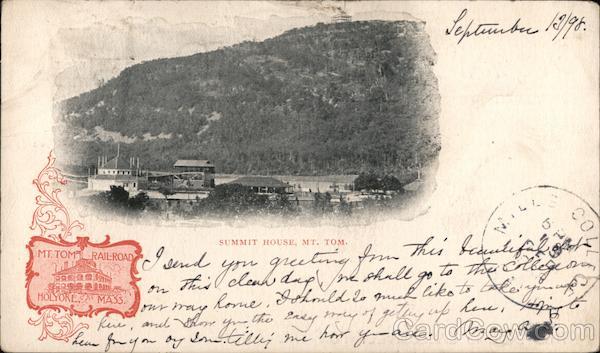 September 13/98.
SUMMIT HOUSE, MT. TOM.
MT. TOM RAILROAD
HOLYOKE, MASS.
MILLS CO
I send you greeting from this beautiful spot
on this clear day we shall go to the college on
our way home. I should so much like to take you up
here, and show you the easy way of getting up here,
hear from you me how you are.
CardCow.com